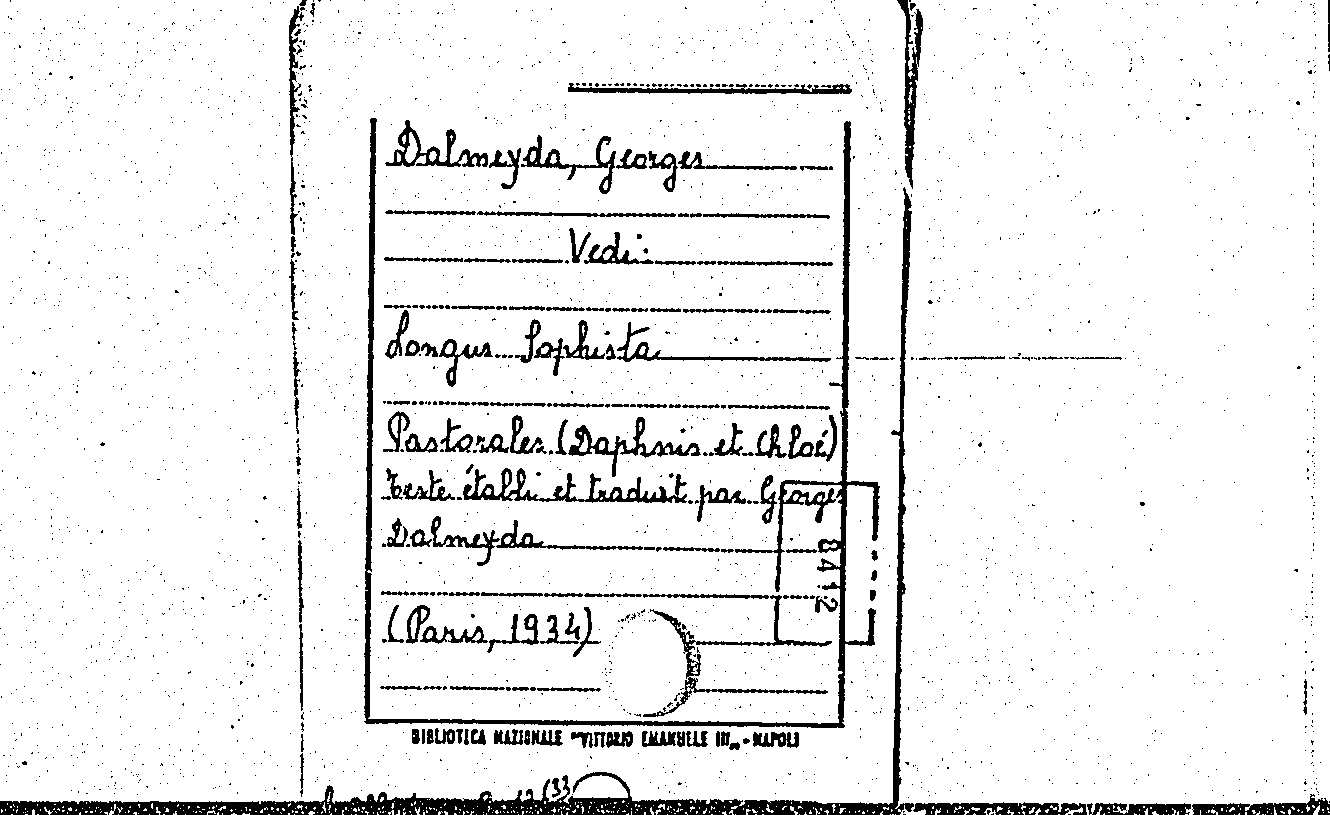 Dalmeyda, Georges
Vedi:
Longus Sophista
Pastorales (Daphnis et Chloé)
texte établi et traduit par Georges
Dalmeyda
8412
(Paris, 1934)
BIBLIOTECA NAZIONALE "VITTORIO EMANUELE III„ - NAPOLI